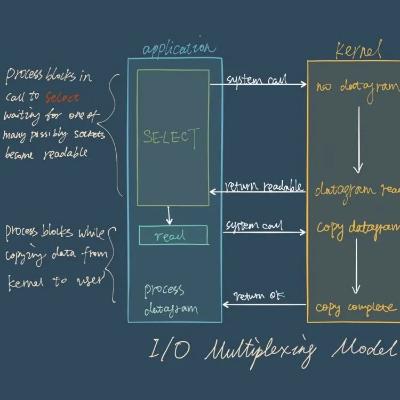 application
Kernel
process blocks in
call to select
waiting for one of
many possibly sockets
become readable
SELECT
system call
no datagram
return readable
datagram
read
system call
copy datagram
process blocks while
copying data from
kernel to user
process
datagram
return OK
copy complete
I/O Multiplexing Model